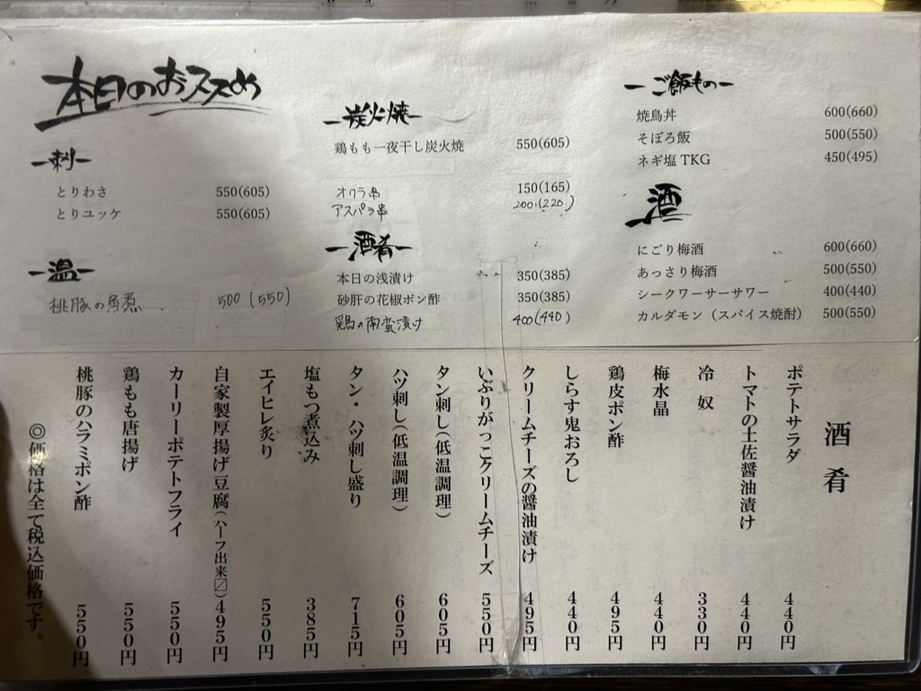 本日のおススめ
刺
とりわさ 550(605)
とりユッケ 550(605)
温
桃豚の角煮 500(550)
炭火焼
鶏もも一夜干し炭火焼 550(605)
オクラ串 150(165)
アスパラ串 200(220)
酒肴
本日の浅漬け 350(385)
砂肝の花椒ポン酢 350(385)
鶏の南蛮漬け 400(440)
ご飯もの
焼鳥丼 600(660)
そぼろ飯 500(550)
ネギ塩TKG 450(495)
酒
にごり梅酒 600(660)
あっさり梅酒 500(550)
シークワーサーサワー 400(440)
カルダモン(スパイス焼酎) 500(550)
酒肴
ポテトサラダ 440円
トマトの土佐醤油漬け 440円
冷奴 330円
梅水晶 440円
鶏皮ポン酢 495円
しらす鬼おろし 440円
クリームチーズの醤油漬け 495円
いぶりがっこクリームチーズ 550円
タン刺し(低温調理) 605円
ハツ刺し(低温調理) 605円
タン・ハツ刺し盛り 715円
塩もつ煮込み 385円
エイヒレ炙り 550円
自家製厚揚げ豆腐(ハーフ出来〼) 495円
カーリーポテトフライ 550円
鶏もも唐揚げ 550円
桃豚のハラミポン酢 550円
◎価格は全て税込価格です。